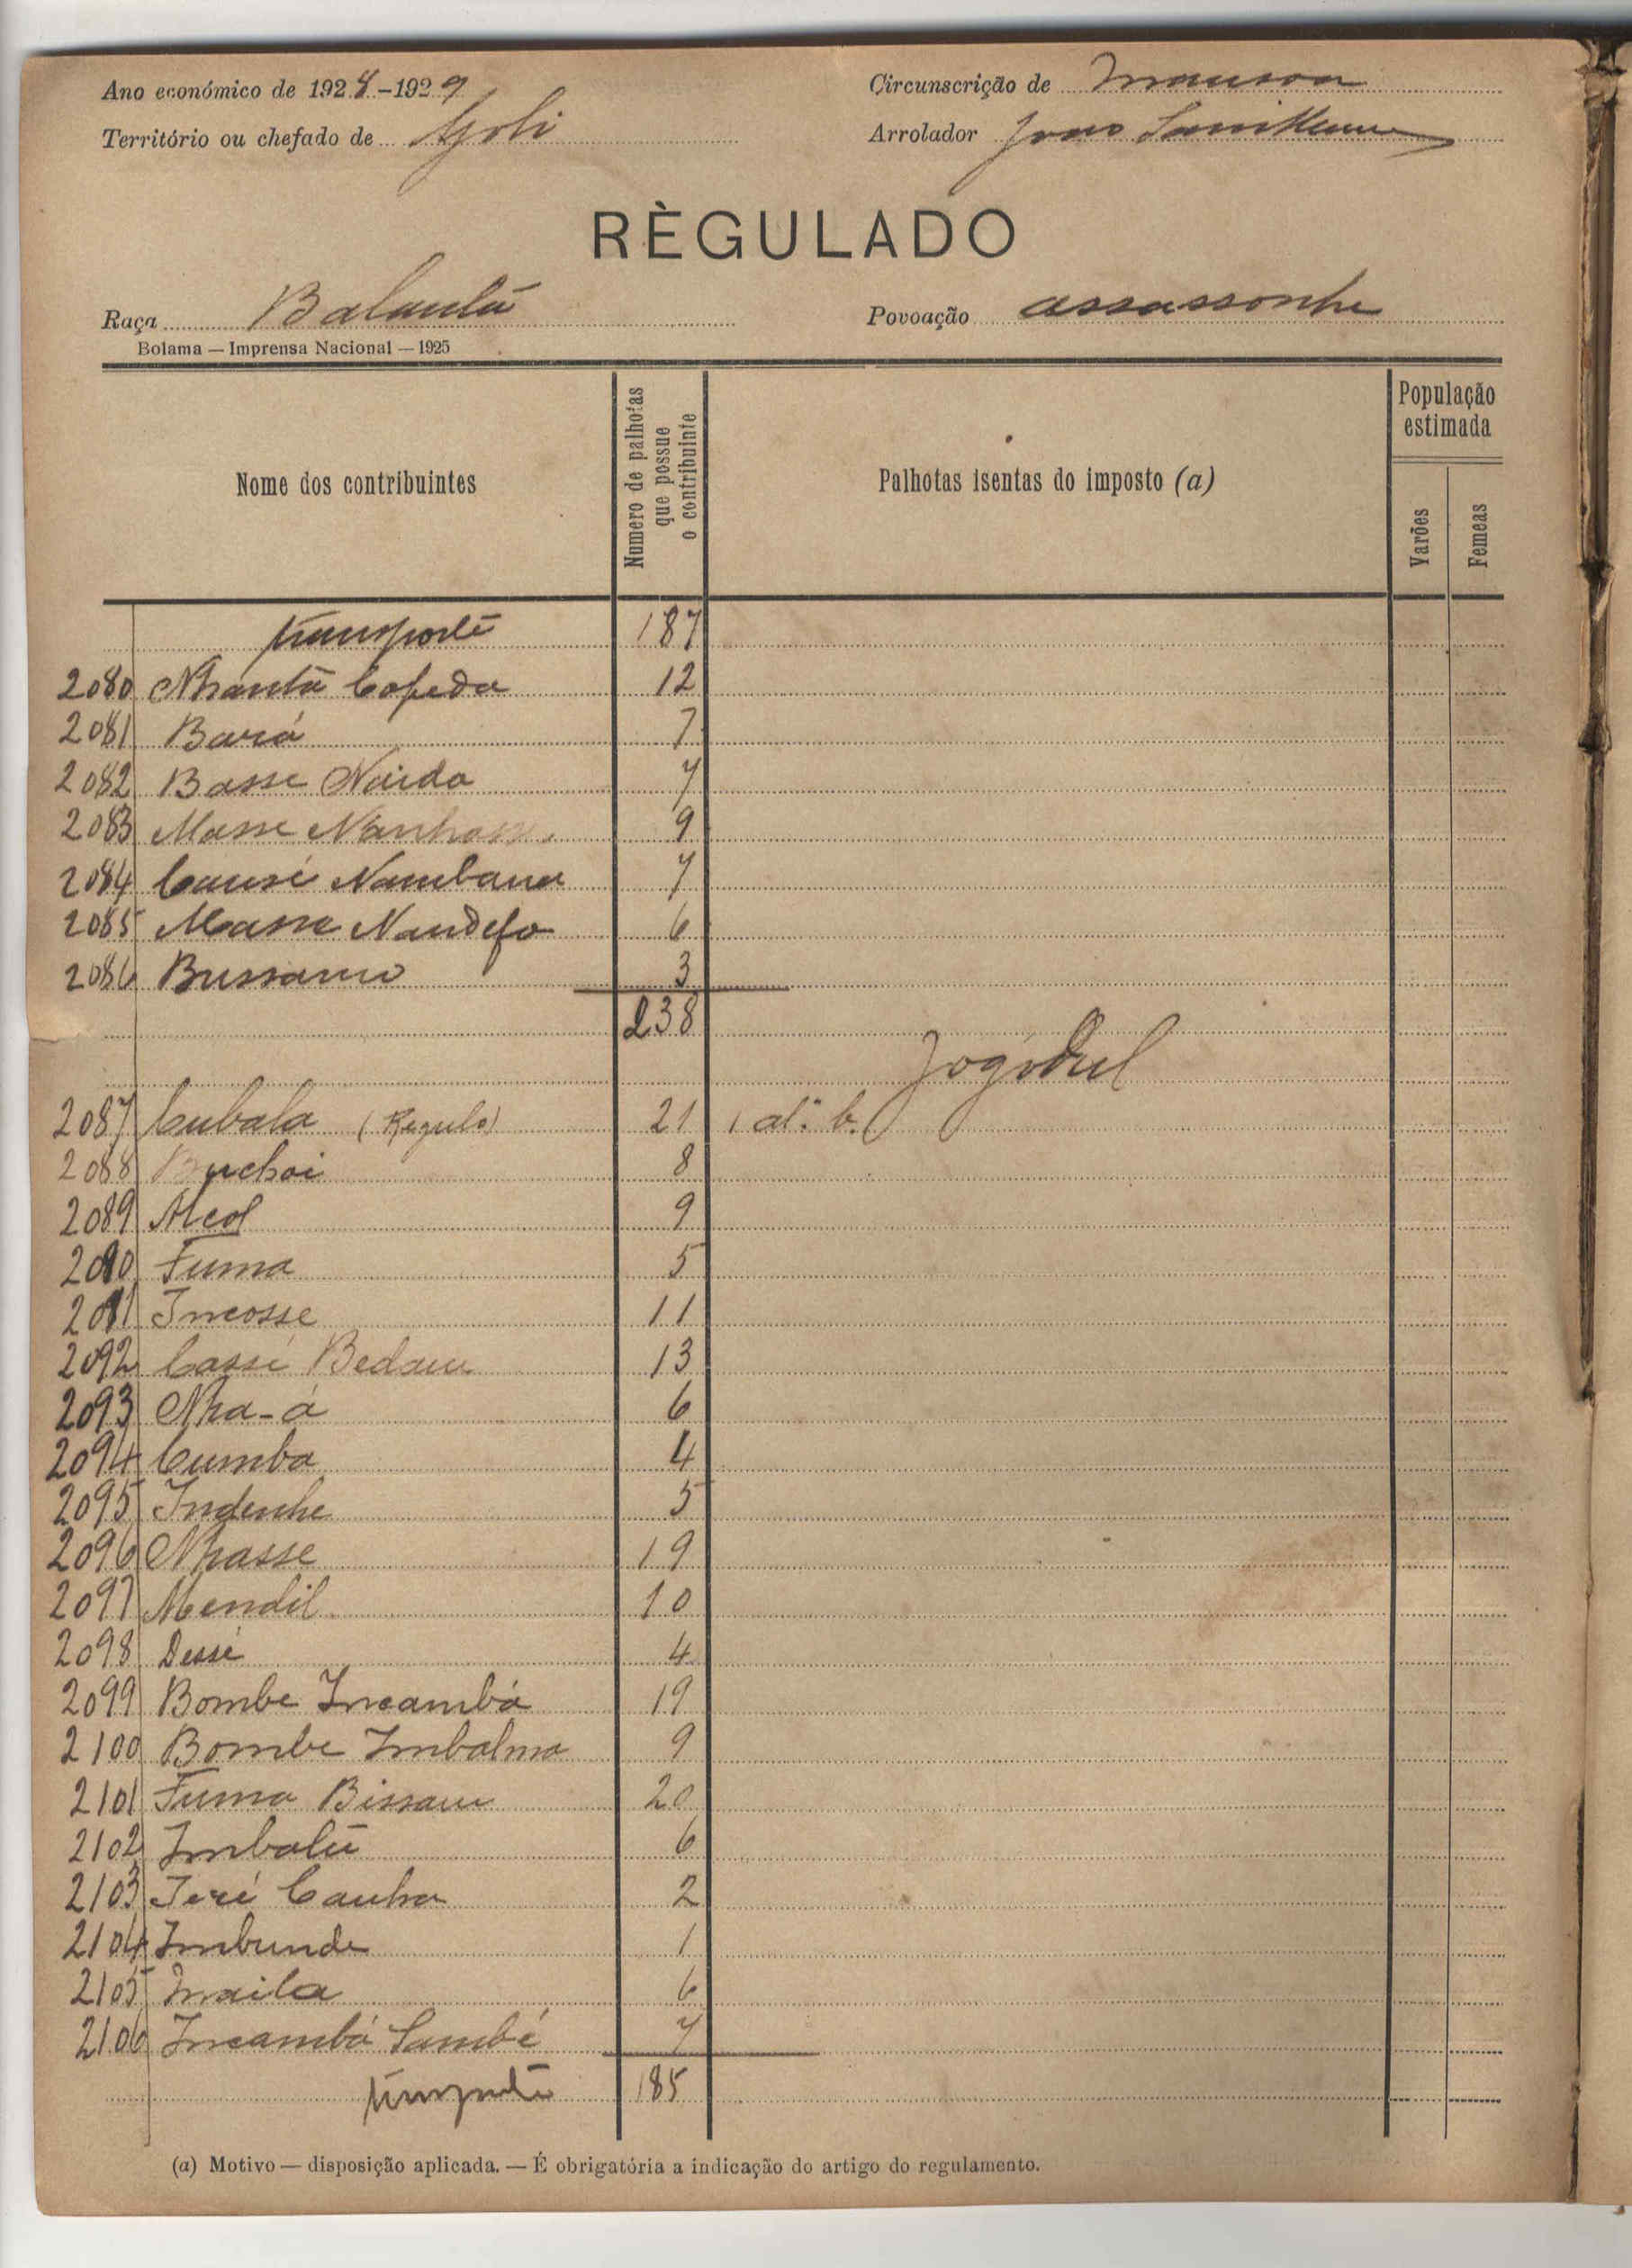 Ano económico de 1928-1929
Circunscrição de Mansoa
Território ou chefado de Goli
Arrolador João
RÈGULADO
Raça Balanta
Povoação assassonhe
Bolama — Imprensa Nacional — 1925
Nome dos contribuintes
Numero de palhotas que possue o contribuinte
Palhotas isentas do imposto (a)
População estimada
Varões
Femeas
transporte 187
2080 Nhantá Cofeda 12
2081 Bará 7
2082 Basse Naida 7
2083 Masse 9
2084 Causé Nambana 7
2085 Massa Nandefo 6
2086 Bussamo 3
238
Jogudul
2087 Cubala (Regulo) 21 1 al. b.
2088 Buchoi 8
2089 Alcol 9
2090 Fuma 5
2091 Incosse 11
2092 Cassé Bedam 13
2093 Nha-á 6
2094 Cumba 4
2095 Indenhe 5
2096 Nhasse 19
2097 Mendil 10
2098 Dessé 4
2099 Bombe Incambá 19
2100 Bombe Imbalma 9
2101 Fuma Bissau 20
2102 Imbatu 6
2103 Teré Canha 2
2104 Imbunde 1
2105 Inaila 6
2106 Incambá Sambé 7
transporte 185
(a) Motivo — disposição aplicada. — É obrigatória a indicação do artigo do regulamento.